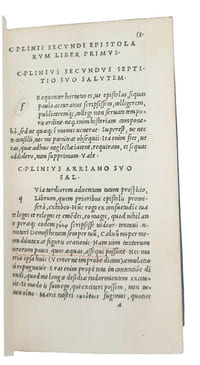 C.PLINII SECVNDI EPISTOLA
RVM LIBER PRIMVS.
C.PLINIVS SECVNDVS SEPTI
TIO SVO SALVTEM.
f Requenter hortatus es, ut epistolas, siquas
paulo accuratius scripsissem, colligerem,
publicaremq;, collegi non seruato tempo
ris ordine. neq; enim historiam compone
bā, sed ut quæq; in manus uenerat. Superest, ut nec
te consilii, nec me pœniteat obsequii. ita enim fiet, ut
eas, quæ adhuc neglectæ iacent, requiram, et siquas
addidero, non supprimam. Vale.
C.PLINIVS ARRIANO SVO
SAL.
q Via tardiorem aduentum tuum prospicio,
Librum, quem prioribus epistolis promi
seram, exhibeo. Hūc rogo ex consuetudine tua
et legas et emēdes, eo magis, quod nihil an
te peræque eodem scripsisse uideor. tentaui .n.
imitari Demosthenem semper tuū, Caluū nuper me
um duntaxat figuris orationis. Nam uim tantorum
uirorum pauci, quos æquus, assequi possunt. Nec ma
teria ipsa huic (Vereor ne improbe dicā) æmulatio
ni repugnauit. Erat enim prope tota in contentiōe di
cendi, quod me longæ desidiæ indormientem excita
uit. Si modo is sum ego, qui excitari possim. Non
Marci nostri fugimus, quoties
a